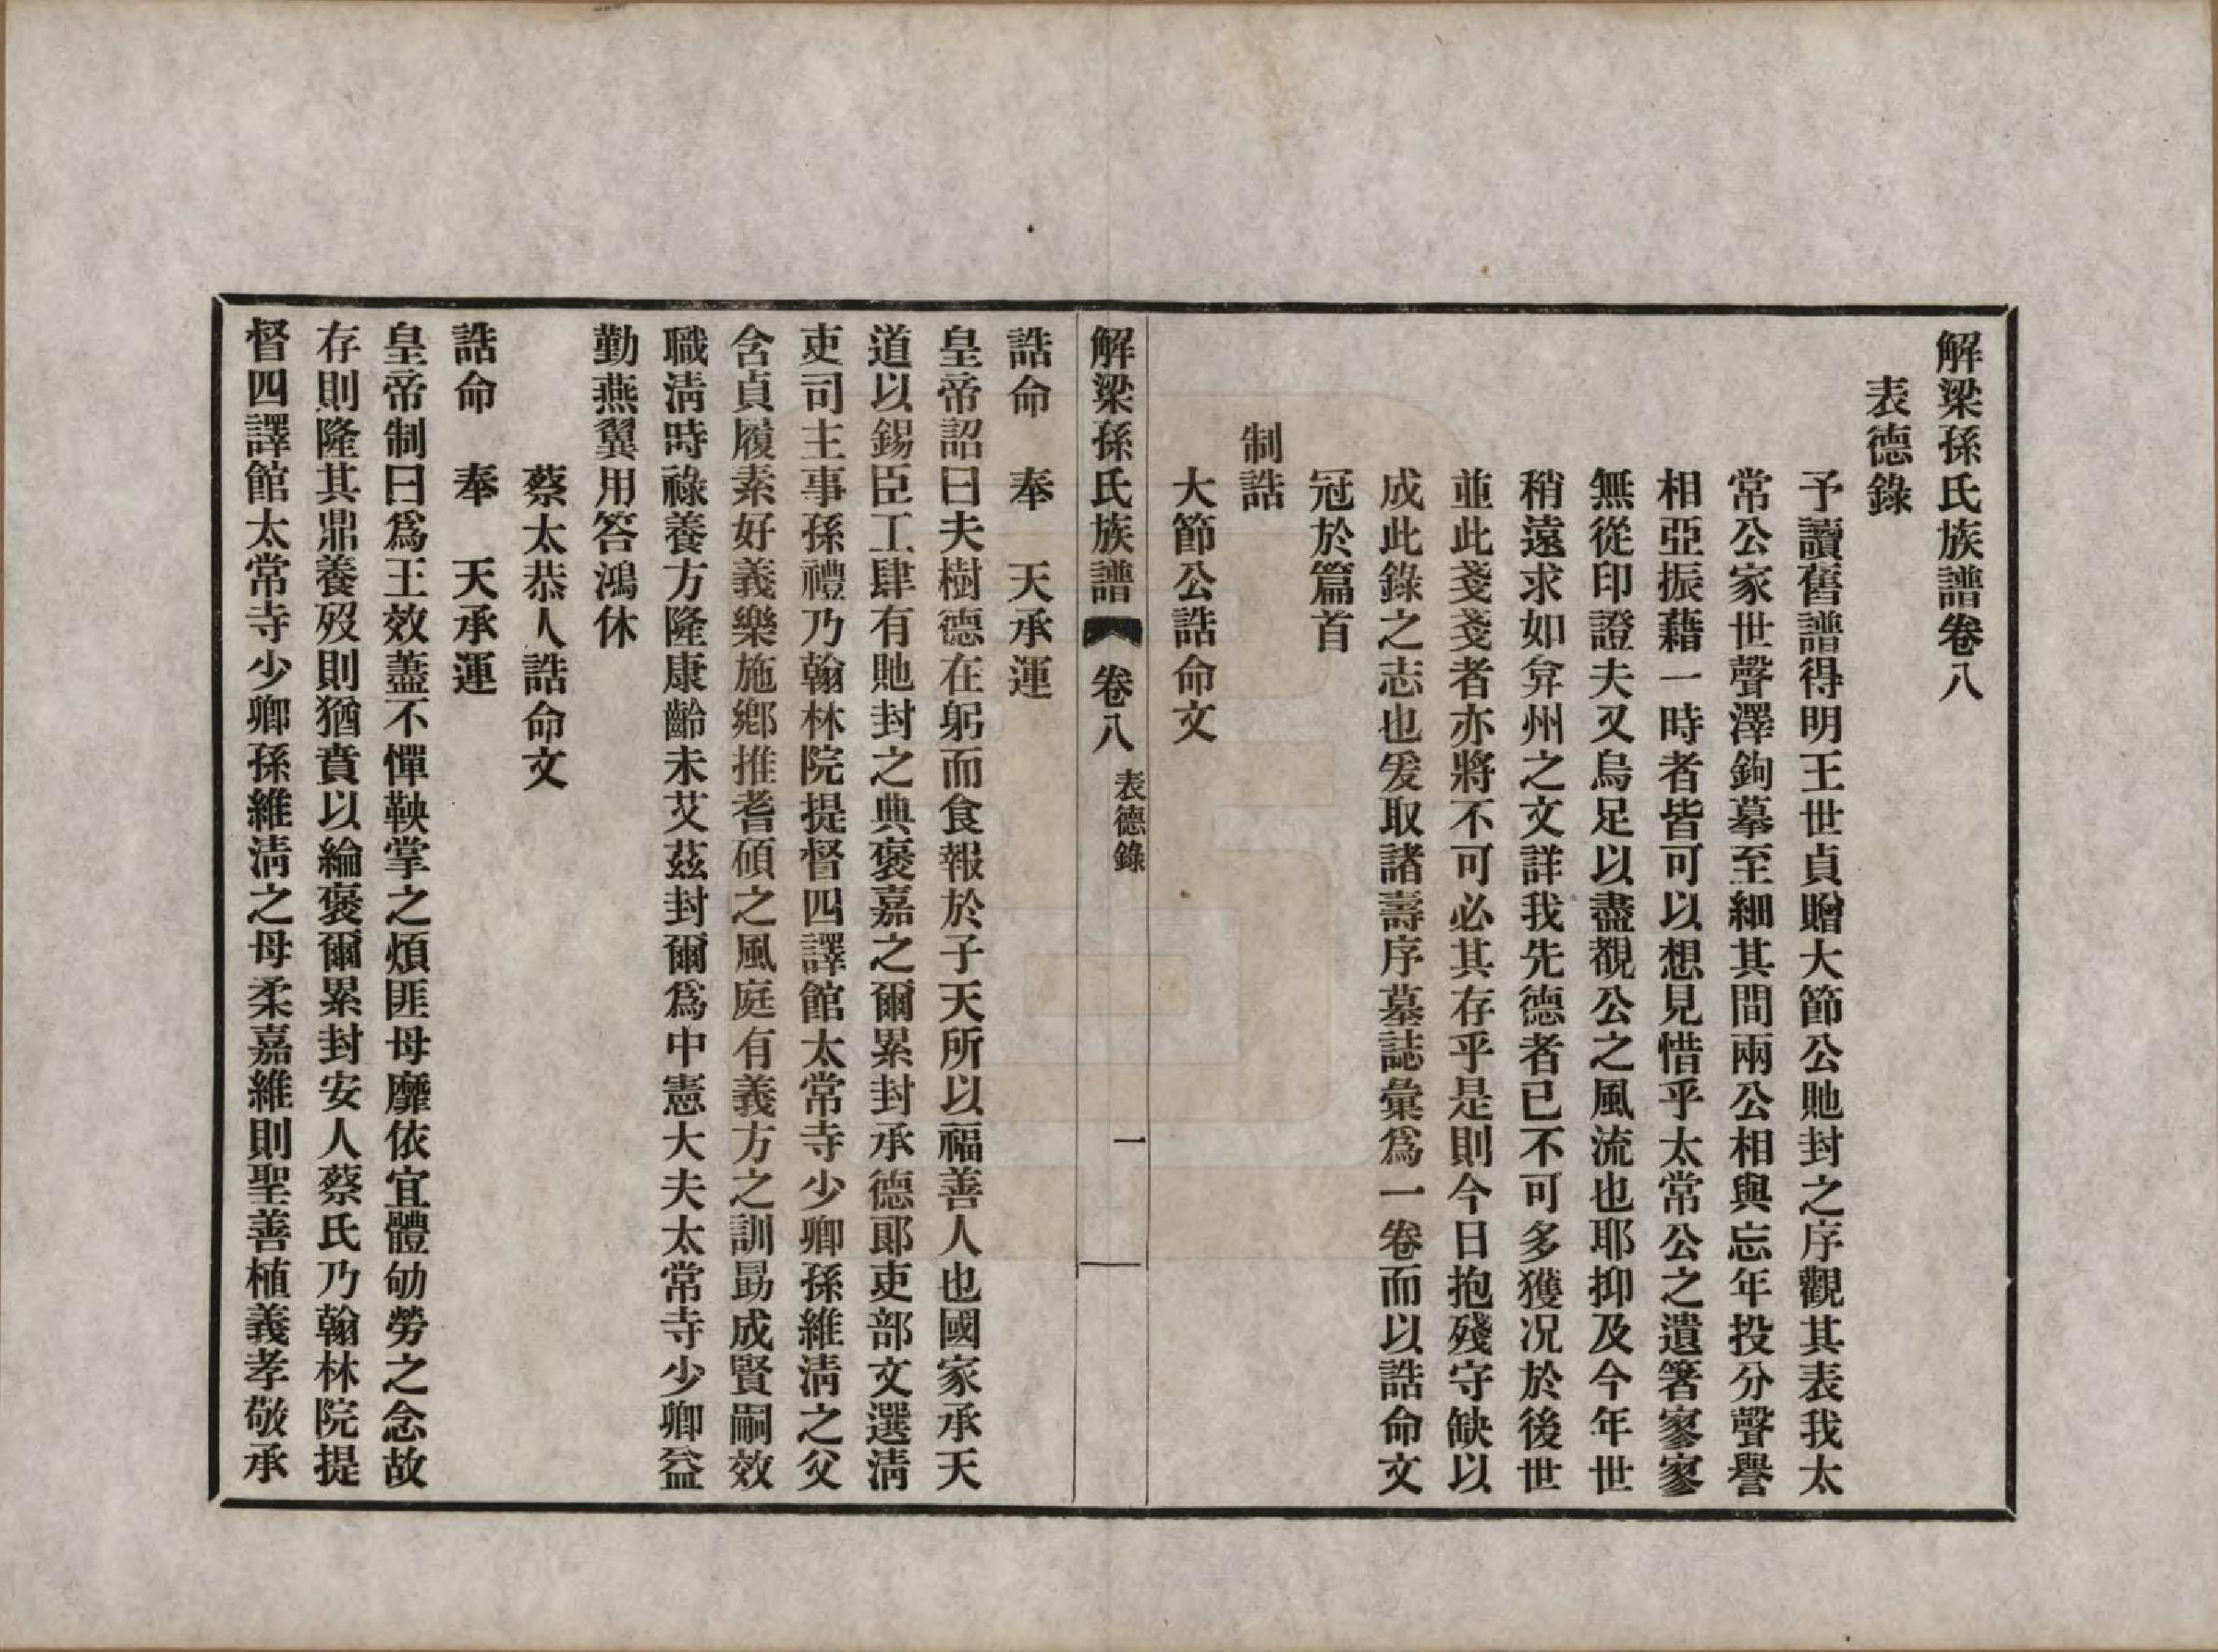 解梁孫氏族譜卷八
表德錄
予讀舊譜得明王世貞贈大節公貤封之序觀其表我太
常公家世聲澤鉤摹至細其間兩公相與忘年投分聲譽
相亞振藉一時者皆可以想見惜乎太常公之遺箸寥寥
無從印證夫又烏足以盡覩公之風流也耶抑及今年世
稍遠求如弇州之文詳我先德者已不可多獲况於後世
並此戔戔者亦將不可必其存乎是則今日抱殘守缺以
成此錄之志也爰取諸壽序墓誌彙爲一卷而以誥命文
冠於篇首
制誥
大節公誥命文
解梁孫氏族譜 卷八 表德錄 一
誥命 奉 天承運
皇帝詔曰夫樹德在躬而食報於子天所以福善人也國家承天
道以錫臣工肆有貤封之典褒嘉之爾累封承德郞吏部文選淸
吏司主事孫禮乃翰林院提督四譯館太常寺少卿孫維淸之父
含貞履素好義樂施鄕推耆碩之風庭有義方之訓勗成賢嗣效
職淸時祿養方隆康齡未艾茲封爾爲中憲大夫太常寺少卿益
勤燕翼用答鴻休
蔡太恭人誥命文
誥命 奉 天承運
皇帝制曰爲王效藎不憚鞅掌之煩匪母靡依宜體劬勞之念故
存則隆其鼎養歿則猶賁以綸褒爾累封安人蔡氏乃翰林院提
督四譯館太常寺少卿孫維淸之母柔嘉維則聖善植義孝敬承